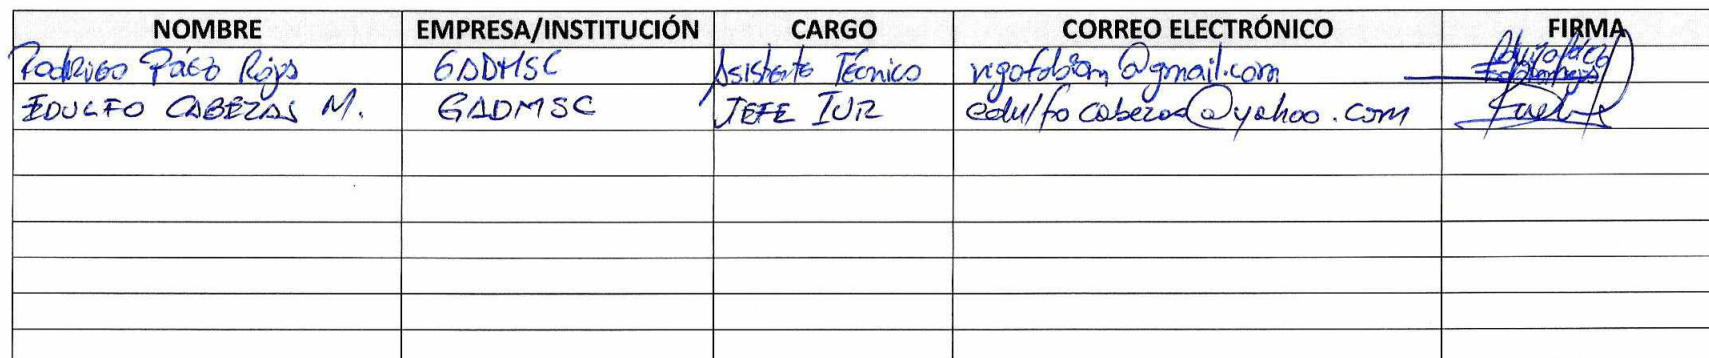 NOMBRE EMPRESA/INSTITUCIÓN CARGO CORREO ELECTRÓNICO FIRMA
Rodrigo Páez Rojas GADMSC Asistente Técnico @gmail.com
EDULFO CABEZAS M. GADMSC JEFE edulfocabezas@yahoo.com